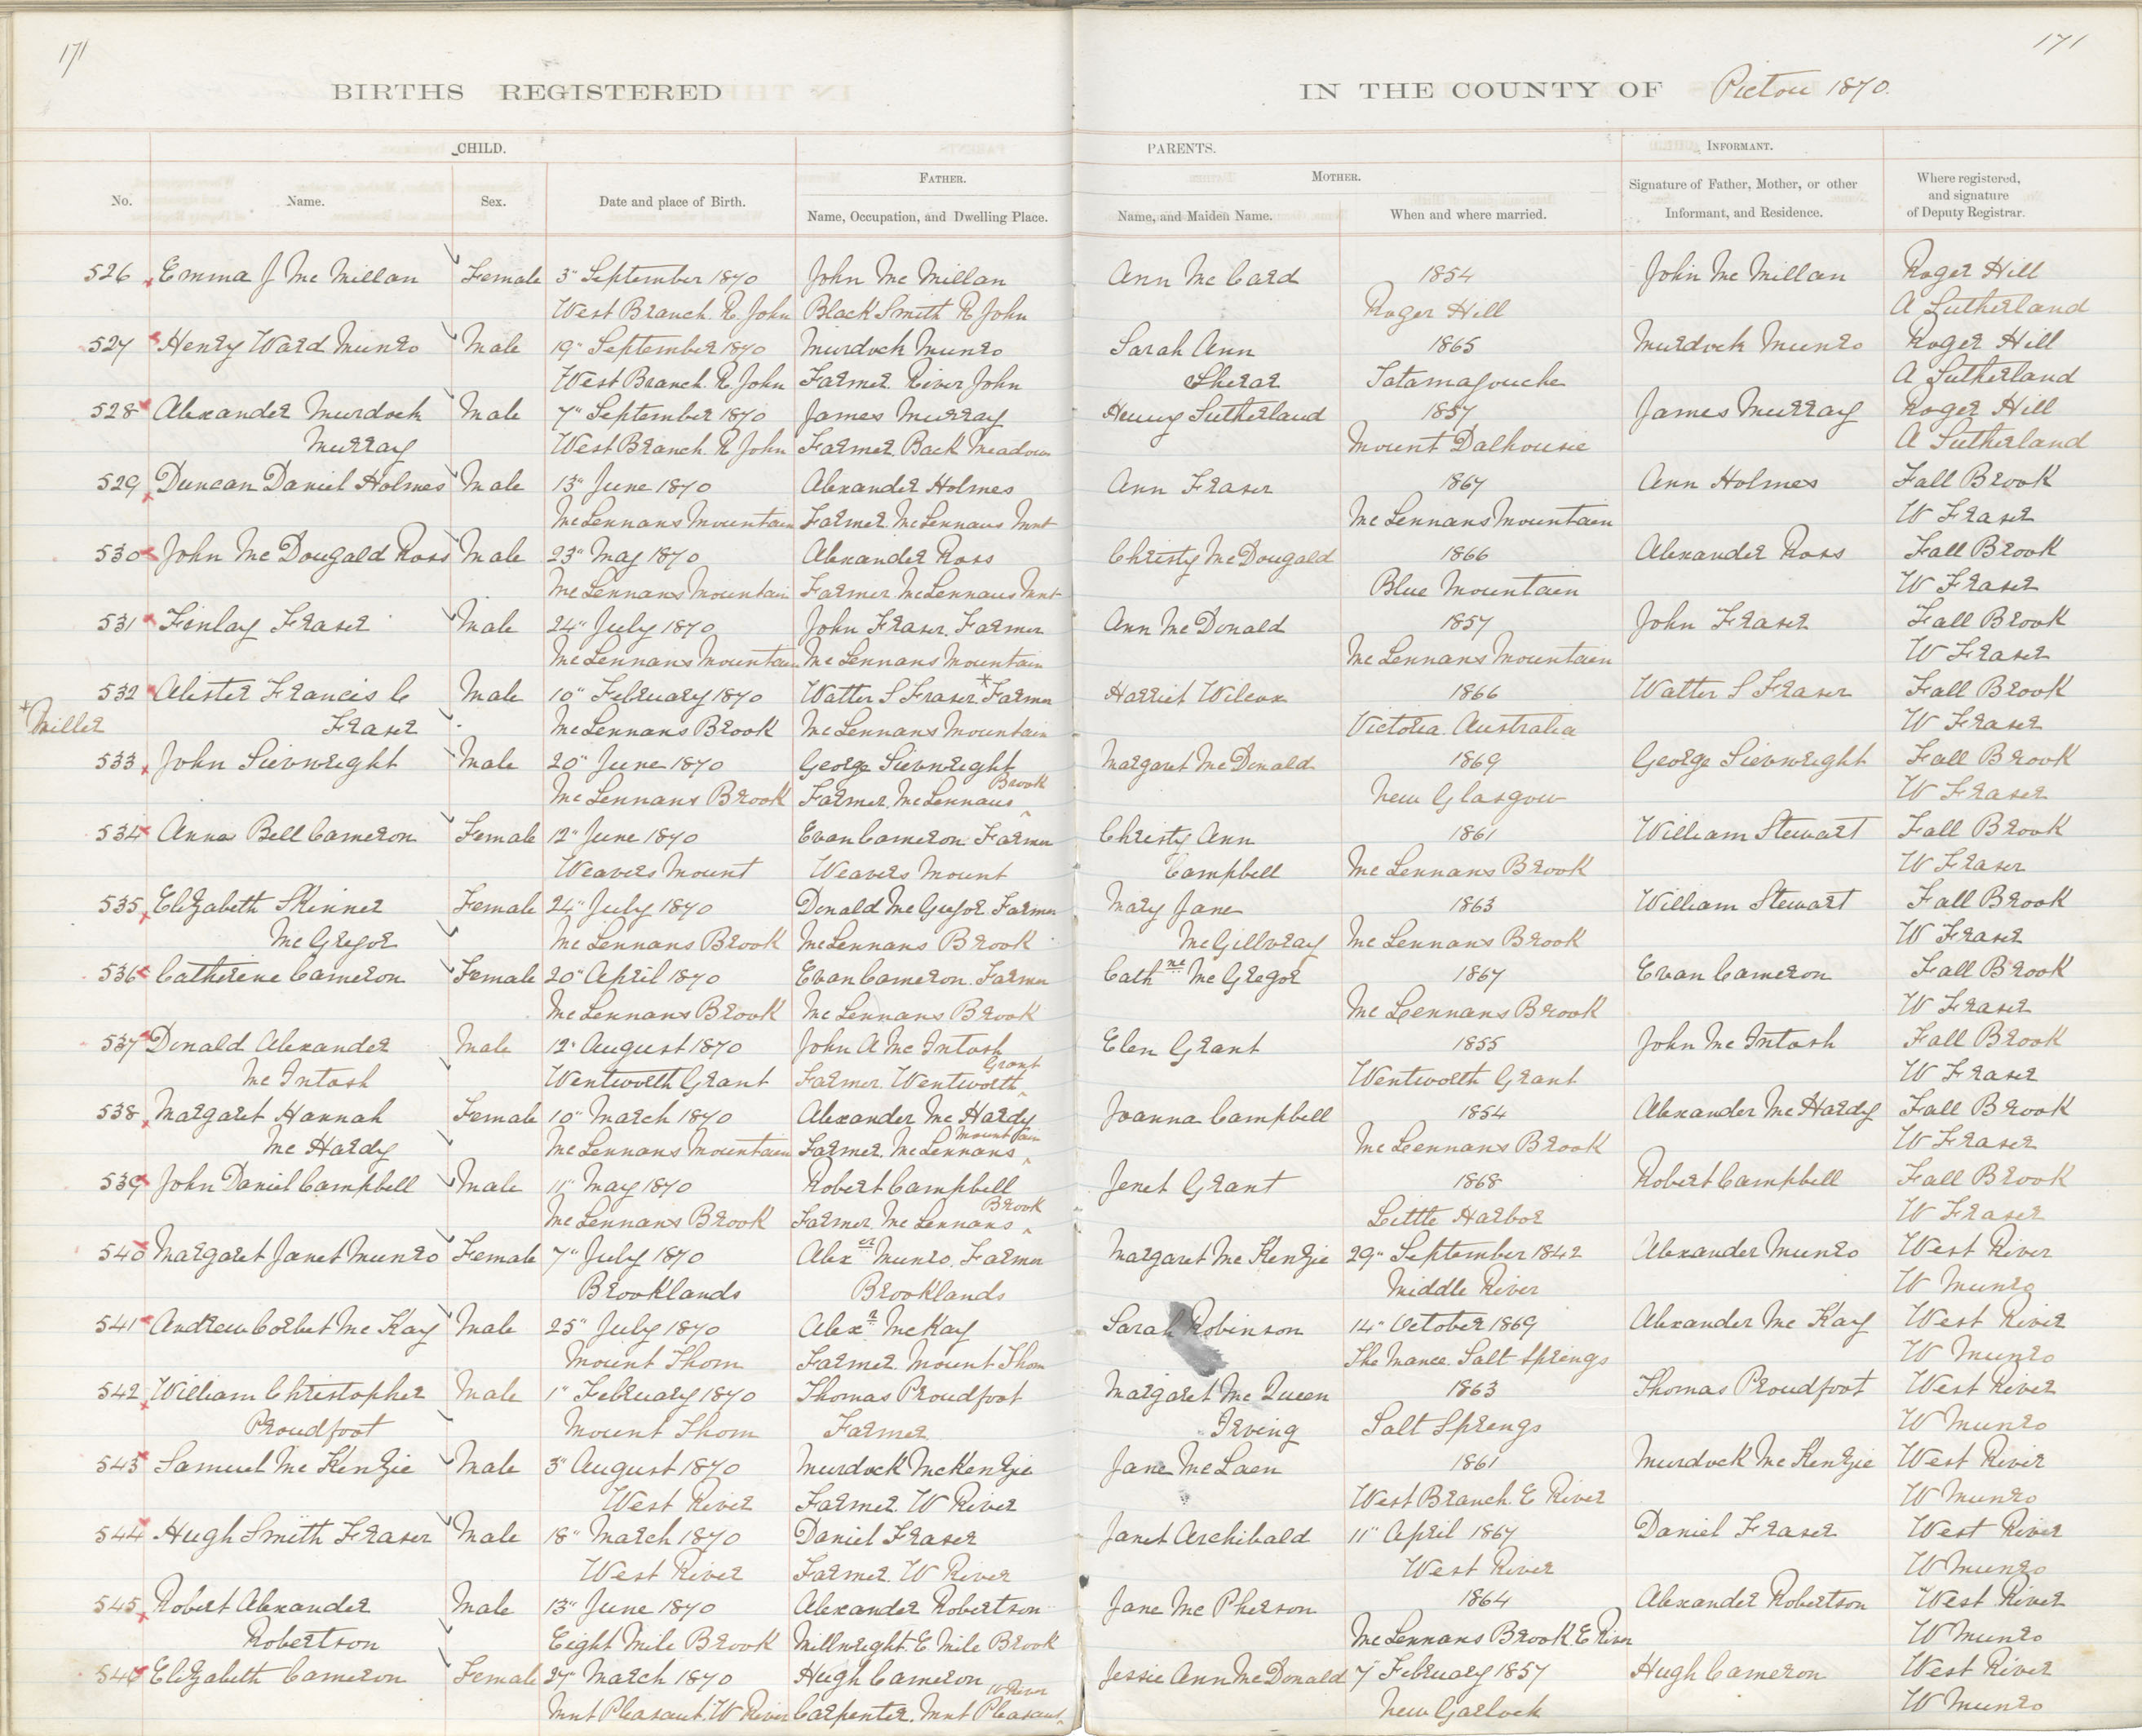 171
171
BIRTHS REGISTERED
IN THE COUNTY OF Pictou 1870.
CHILD.
PARENTS.
INFORMANT.
No.
Name.
Sex.
Date and place of Birth.
FATHER.
Name, Occupation, and Dwelling Place.
MOTHER.
Name, and Maiden Name.
When and where married.
Signature of Father, Mother, or other
Informant, and Residence.
Where registered,
and signature
of Deputy Registrar.
526 Emma J McMillan Female 3" September 1870 John McMillan Ann McCard 1854 John McMillan Roger Hill
West Branch. R. John Black Smith R John Roger Hill A Sutherland
527 Henry Ward Munro Male 19" September 1870 Murdock Munro Sarah Ann 1865 Murdock Munro Roger Hill
West Branch. R. John Farmer. River John Sherar Tatamagouche A Sutherland
528 Alexander Murdock Male 7" September 1870 James Murray Henny Sutherland 1857 James Murray Roger Hill
Murray West Branch. R John Farmer. Back Meadow Mount Dalhousie A Sutherland
529 Duncan Daniel Holmes Male 13" June 1870 Alexander Holmes Ann Fraser 1867 Ann Holmes Fall Brook
McLennans Mountain Farmer. McLennans Mnt McLennans Mountain W Fraser
530 John McDougald Ross Male 23" May 1870 Alexander Ross Christy McDougald 1866 Alexander Ross Fall Brook
McLennans Mountain Farmer McLennans Mnt Blue Mountain W Fraser
531 Finlay Fraser Male 24" July 1870 John Fraser. Farmer Ann McDonald 1857 John Fraser Fall Brook
McLennans Mountain McLennans Mountain McLennans Mountain W Fraser
532 Alister Francis C Male 10" February 1870 Walter S Fraser *Farmer Harriet Wilcox 1866 Walter S Fraser Fall Brook
*Miller Fraser McLennans Brook McLennans Mountain Victoria Australia W Fraser
533 John Sievwright Male 20" June 1870 George Sievwright Margaret McDonald 1869 George Sievwright Fall Brook
McLennans Brook Farmer. McLennans Brook New Glasgow W Fraser
534 Anna Bell Cameron Female 12" June 1870 Evan Cameron. Farmer Christy Ann 1861 William Stewart Fall Brook
Weavers Mount Weavers Mount Campbell McLennans Brook W Fraser
535 Elizabeth Skinner Female 24" July 1870 Donald McGregor Farmer Mary Jane 1863 William Stewart Fall Brook
McGregor McLennans Brook McLennans Brook McGillvray McLennans Brook W Fraser
536 Catherine Cameron Female 20" April 1870 Evan Cameron. Farmer Cathne McGregor 1867 Evan Cameron Fall Brook
McLennans Brook McLennans Brook McLennans Brook W Fraser
537 Donald Alexander Male 12" August 1870 John A McIntosh Elen Grant 1855 John McIntosh Fall Brook
McIntosh Wentworth Grant Farmer. Wentworth Grant Wentworth Grant W Fraser
538 Margaret Hannah Female 10" March 1870 Alexander McHardy Joanna Campbell 1854 Alexander McHardy Fall Brook
McHardy McLennans Mountain Farmer. McLennans Mountain McLennans Brook W Fraser
539 John Daniel Campbell Male 11" May 1870 Robert Campbell Jenet Grant 1868 Robert Campbell Fall Brook
McLennans Brook Farmer. McLennans Brook Little Harbor W Fraser
540 Margaret Janet Munro Female 7" July 1870 Alexer Munro. Farmer Margaret McKenzie 29" September 1842 Alexander Munro West River
Brooklands Brooklands Middle River W Munro
541 Andrew Corbet McKay Male 25" July 1870 Alexr McKay Sarah Robinson 14" October 1869 Alexander McKay West River
Mount Thom Farmer. Mount Thom The Mance. Salt Springs W Munro
542 William Christopher Male 1" February 1870 Thomas Proudfoot Margaret McQueen 1863 Thomas Proudfoot West River
Proudfoot Mount Thom Farmer Irving Salt Springs W Munro
543 Samuel McKenzie Male 3" August 1870 Murdock McKenzie Jane McLaen 1861 Murdock McKenzie West River
West River Farmer. W River West Branch. E River W Munro
544 Hugh Smith Fraser Male 18" March 1870 Daniel Fraser Janet Archibald 11" April 1867 Daniel Fraser West River
West River Farmer. W River West River W Munro
545 Robert Alexander Male 13" June 1870 Alexander Robertson Jane McPherson 1864 Alexander Robertson West River
Robertson Eight Mile Brook Millwright. E Mile Brook McLennans Brook. E River W Munro
546 Elizabeth Cameron Female 27" March 1870 Hugh Cameron Jessie Ann McDonald 7" February 1857 Hugh Cameron West River
Mnt Pleasant. W River Carpenter. Mnt Pleasant W River New Garlock W Munro